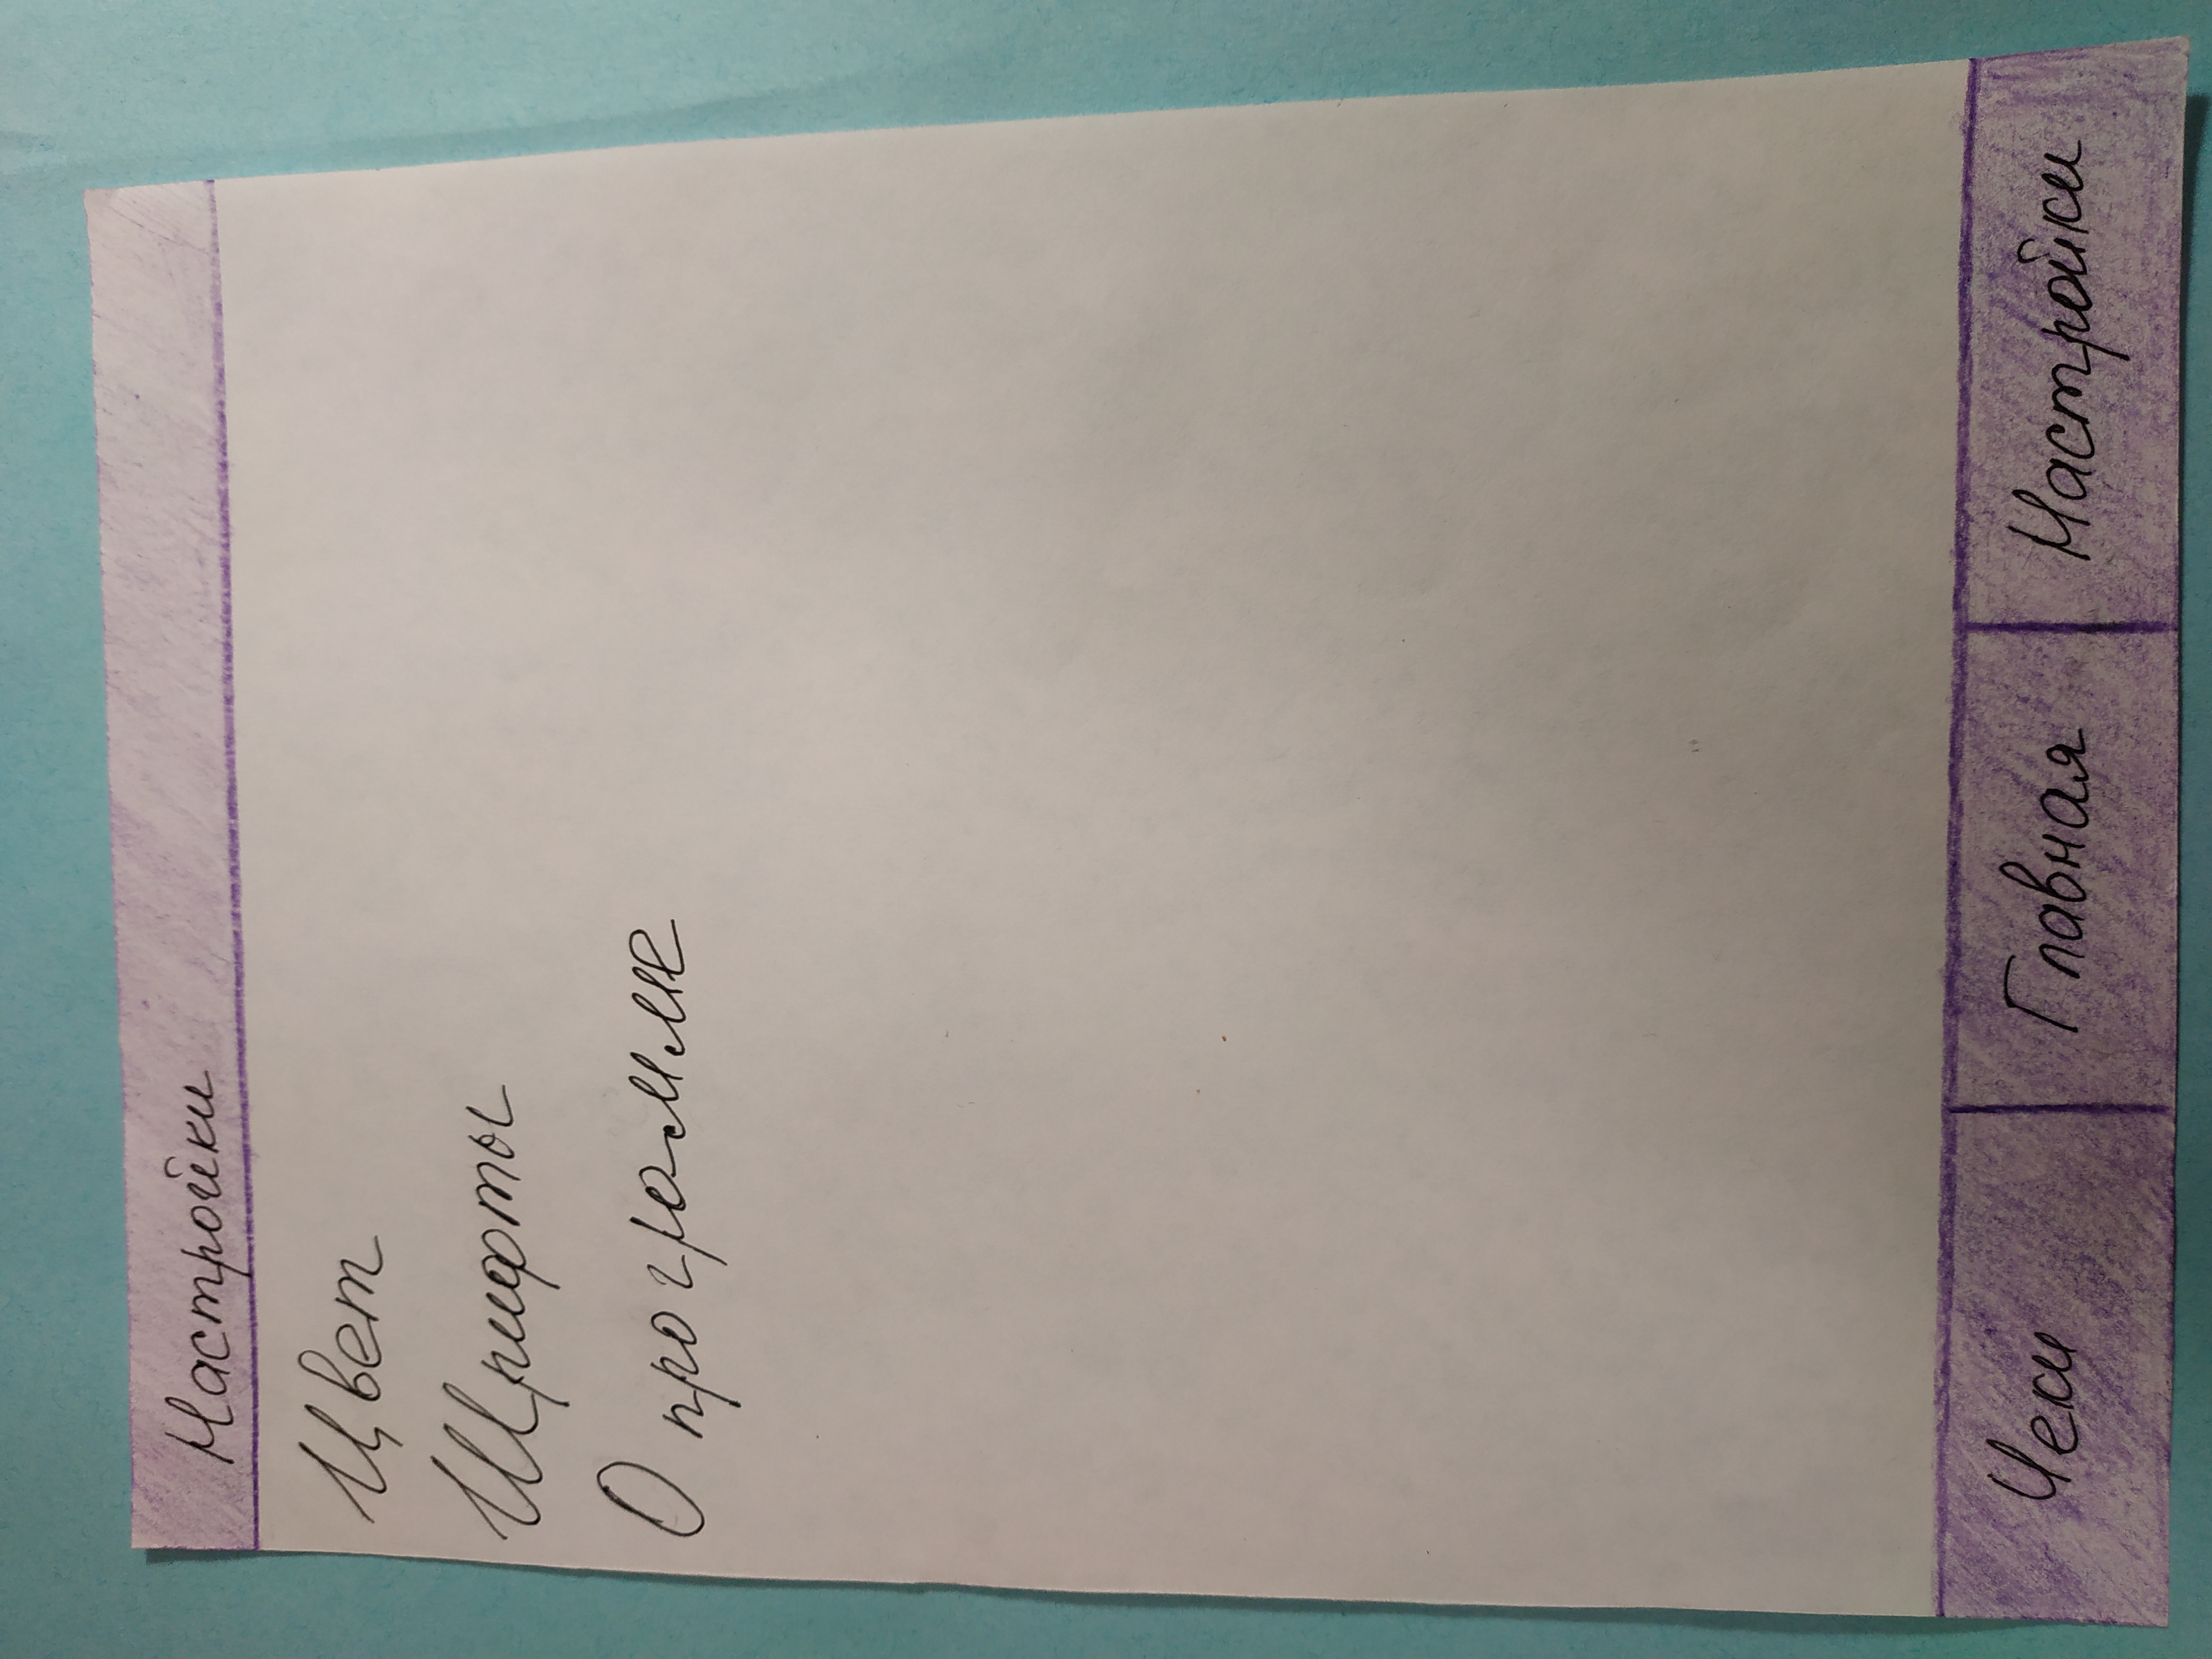 Настройки
Цвет
Шрифты
О программе
Чеки Главная Настройки